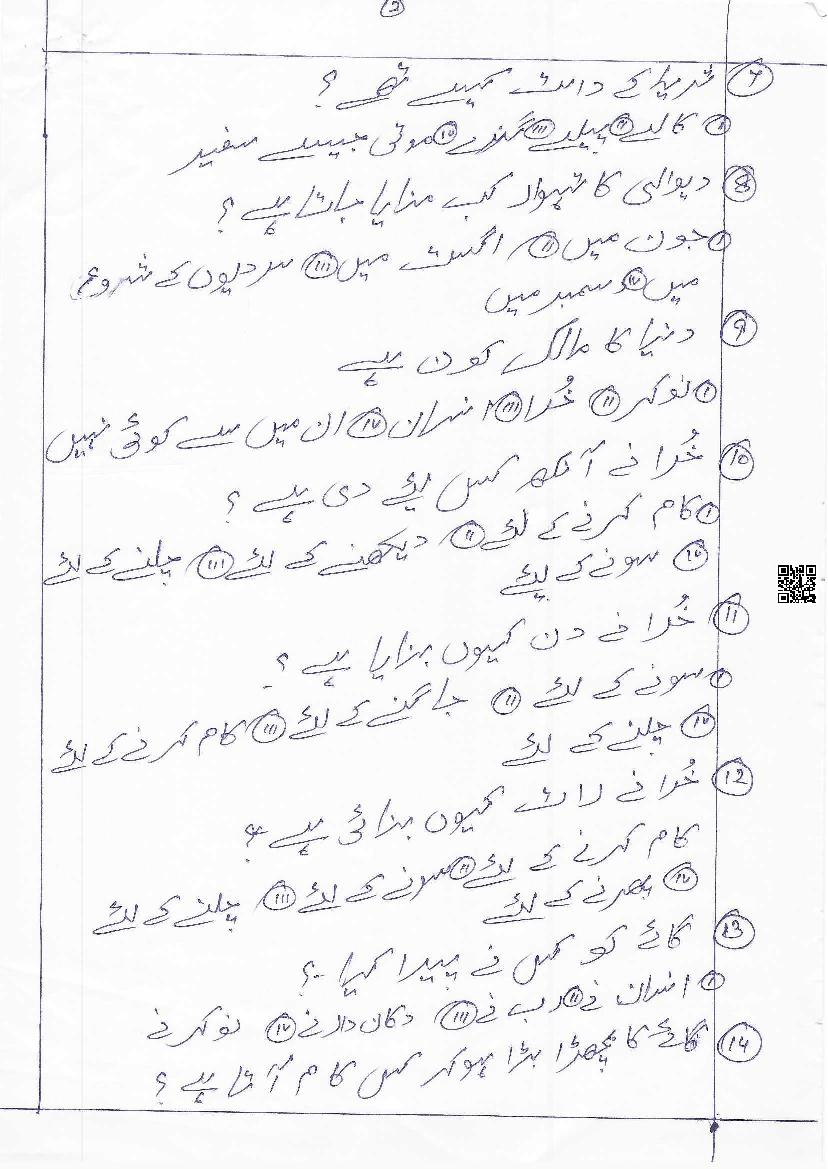 2
7 ثریا کے دانت کیسے تھے؟
i کالے ii پیلے iii گندے iv موتی جیسے سفید
8 دیوالی کا تہوار کب منایا جاتا ہے؟
i جون میں ii اگست میں iii سردیوں کے شروع
میں iv دسمبر میں
9 دنیا کا مالک کون ہے
i نوکر ii خُدا iii انسان iv ان میں سے کوئی نہیں
10 خُدا نے آنکھ کس لئے دی ہے؟
i کام کرنے کے لئے ii دیکھنے کے لئے iii چلنے کے لئے
iv سونے کے لئے
11 خُدا نے دن کیوں بنایا ہے؟
i سونے کے لئے ii جاگنے کے لئے iii کام کرنے کے لئے
iv چلنے کے لئے
12 خُدا نے رات کیوں بنائی ہے؟
کام کرنے کے لئے ii سونے کے لئے iii چلنے کے لئے
iv پھرنے کے لئے
13 گائے کو کس نے پیدا کیا؟
i انسان نے ii رب نے iii دکان دار نے iv نوکر نے
14 گائے کا بچھڑا بڑا ہوکر کس کام آتا ہے؟